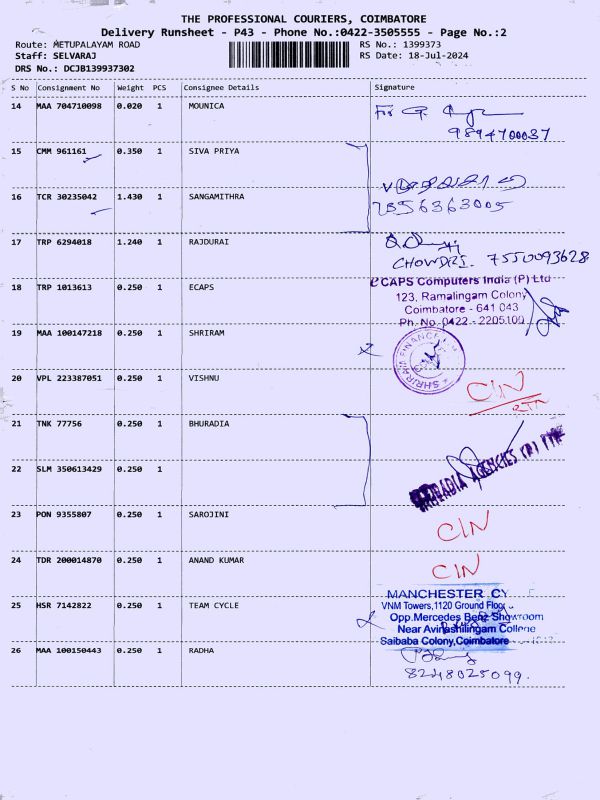 THE PROFESSIONAL COURIERS, COIMBATORE
Delivery Runsheet - P43 - Phone No.:0422-3505555 - Page No.:2
Route: METUPALAYAM ROAD
RS No.: 1399373
Staff: SELVARAJ
RS Date: 18-Jul-2024
DRS No.: DCJB139937302
S No Consignment No Weight PCS Consignee Details Signature
14 MAA 704710098 0.020 1 MOUNICA
For G.
9894700037
15 CMM 961161 0.350 1 SIVA PRIYA
16 TCR 30235042 1.430 1 SANGAMITHRA
7356363005
17 TRP 6294018 1.240 1 RAJDURAI
CHOWDRI. 7550093628
18 TRP 1013613 0.250 1 ECAPS
eCAPS Computers India (P) Ltd
123, Ramalingam Colony
Coimbatore - 641 043
Ph. No. 0422 - 2205100
19 MAA 100147218 0.250 1 SHRIRAM
SHRIRAM FINANCE
20 VPL 223387051 0.250 1 VISHNU
CIN
RTN
21 TNK 77756 0.250 1 BHURADIA
22 SLM 350613429 0.250 1
AGENCIES (P) LTD
23 PON 9355807 0.250 1 SAROJINI
CIN
24 TDR 200014870 0.250 1 ANAND KUMAR
CIN
25 HSR 7142822 0.250 1 TEAM CYCLE
MANCHESTER CY
VNM Towers, 1120 Ground Floor
Opp.Mercedes Benz Showroom
Near Avinashilingam College
Saibaba Colony, Coimbatore
26 MAA 100150443 0.250 1 RADHA
8248025099.